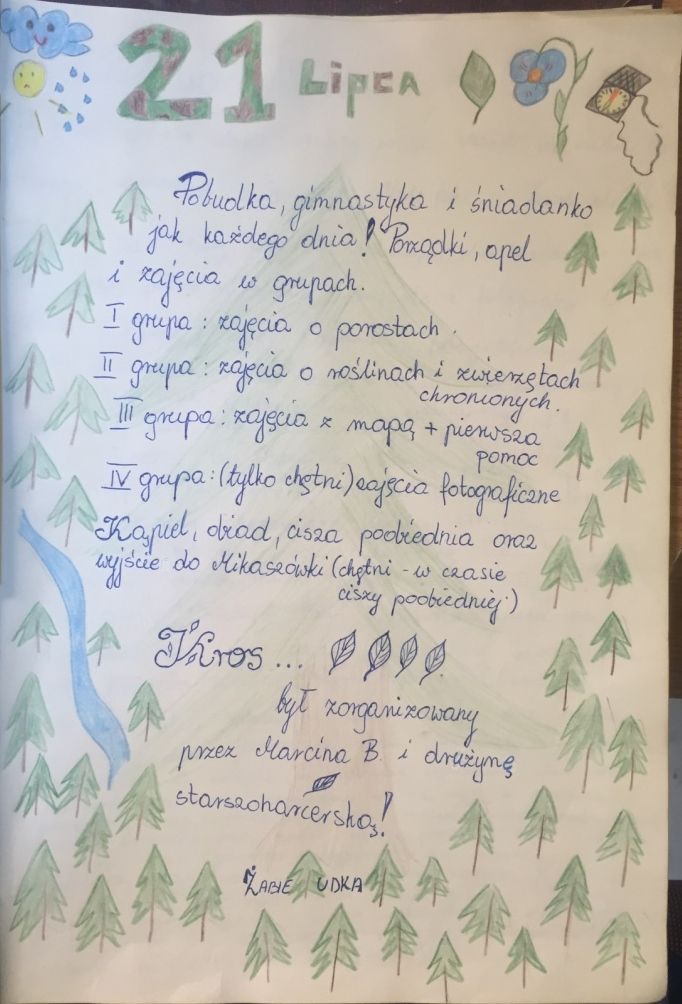 21 Lipca
Pobudka, gimnastyka i śniadanko
jak każdego dnia! Porządki, apel
i zajęcia w grupach.
I grupa: zajęcia o porostach.
II grupa: zajęcia o roślinach i zwierzętach
chronionych.
III grupa: zajęcia z mapą + pierwsza
pomoc
IV grupa: (tylko chętni) zajęcia fotograficzne
Kąpiel, obiad, cisza poobiednia oraz
wyjście do Mikaszówki (chętni - w czasie
ciszy poobiedniej)
Kros...
był zorganizowany
przez Marcina B. i drużynę
starszoharcerską!
ŻABIE UDKA